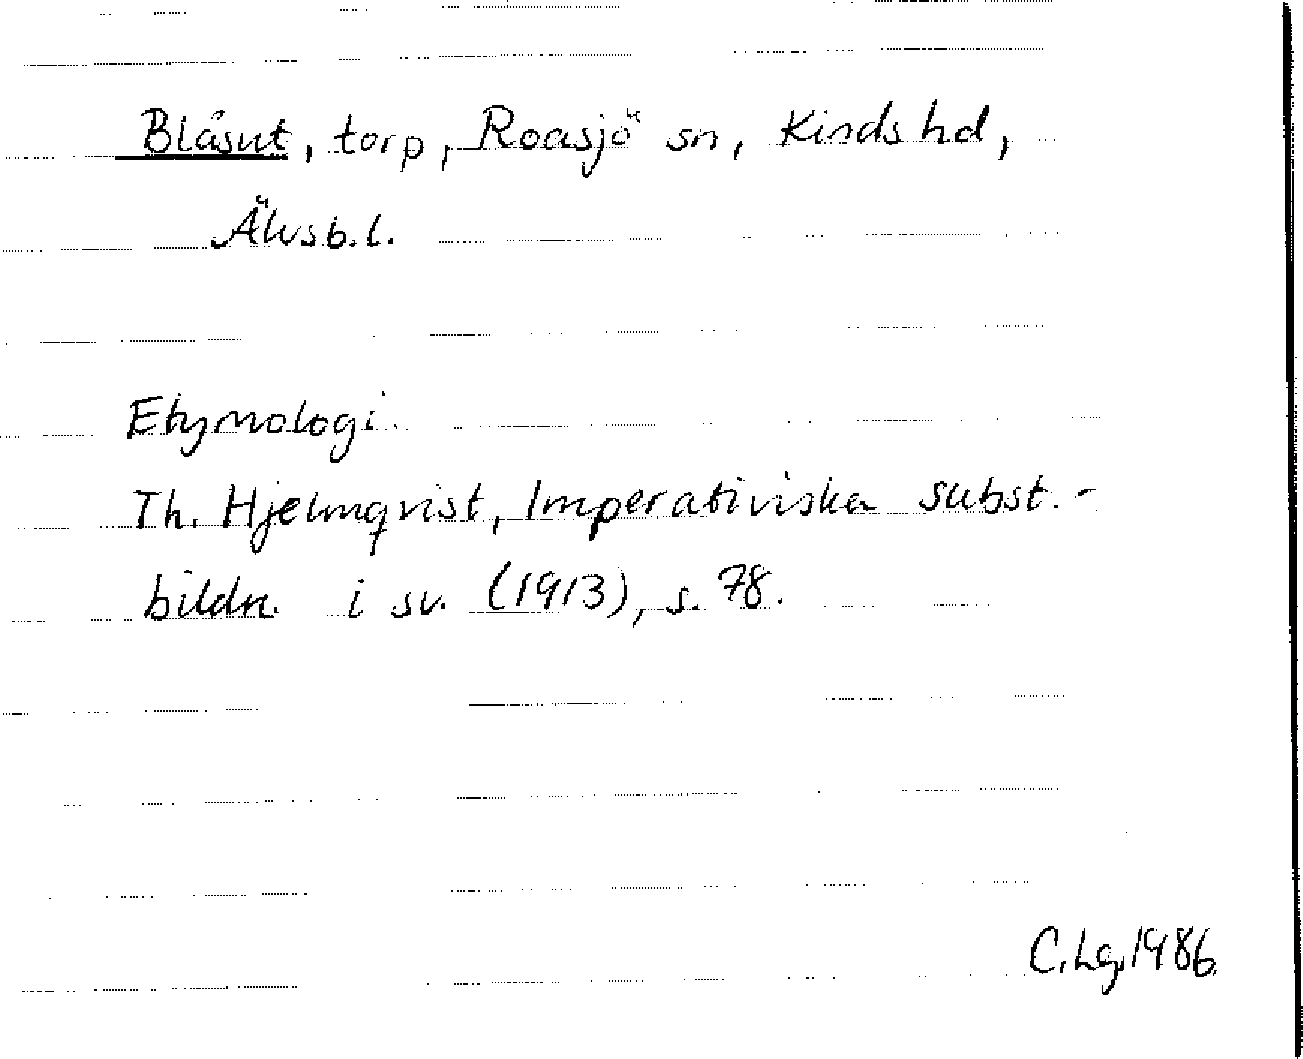 Blåsut, torp, Roasjö sn, Kinds hd,
Älvsb.l.
Etymologi.
Th. Hjelmqvist, Imperativiska subst.-
bildn. i sv. (1913), s. 78.
C.Lg.1986